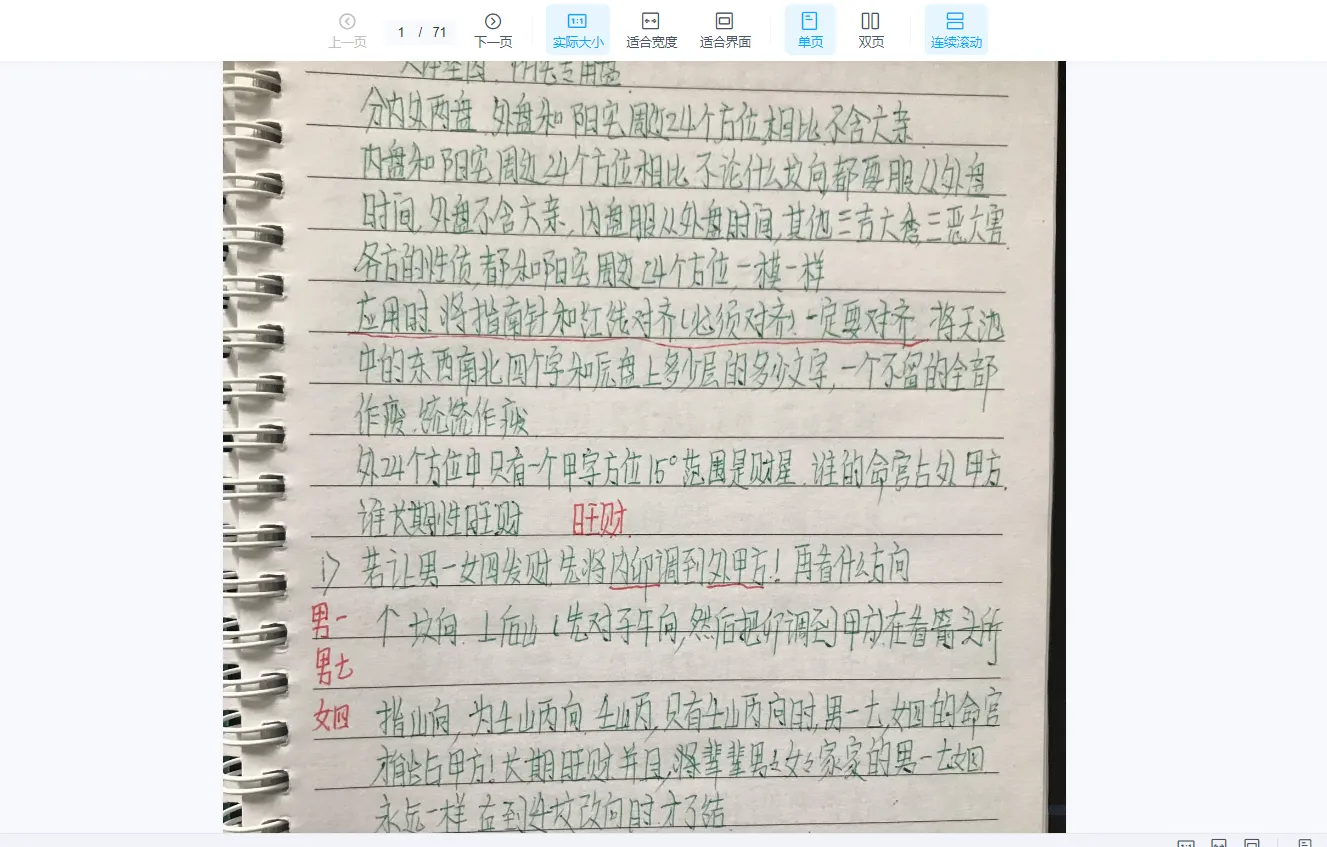 上一页
1 / 71
下一页
实际大小
适合宽度
适合界面
单页
双页
连续滚动
分内外两盘 外盘和阳宅周边24个方位相比,不含六亲
内盘和阳宅周边24个方位相比 不论什么坟向,都要服从外盘
时间,外盘不含六亲,内盘服从外盘时间,其他三吉六秀三恶六害
各方的性质,都和阳宅周边24个方位,一模一样
应用时,将指南针和红线对齐(必须对齐)一定要对齐,将天池
中的东西南北四个字和底盘上多少层的多少文字,一个不留的全部
作废,统统作废
外24个方位中只有一个甲字方位15°范围是财星,谁的命宫占外甲方,
谁长期性旺财 旺财
1) 若让男一女四发财,先将内卯调到外甲方!再看什么方向
男一 个坟向,上后山(先对子午向,然后把卯调到甲方)在看箭头所
男七
女四 指山向,为壬山丙向 壬山丙,只有壬山丙向时,男一七,女四的命宫
才能占甲方!长期旺财并且,将辈辈男男女女家家的男一七女四
永远一样 直到迁坟改向时才了结